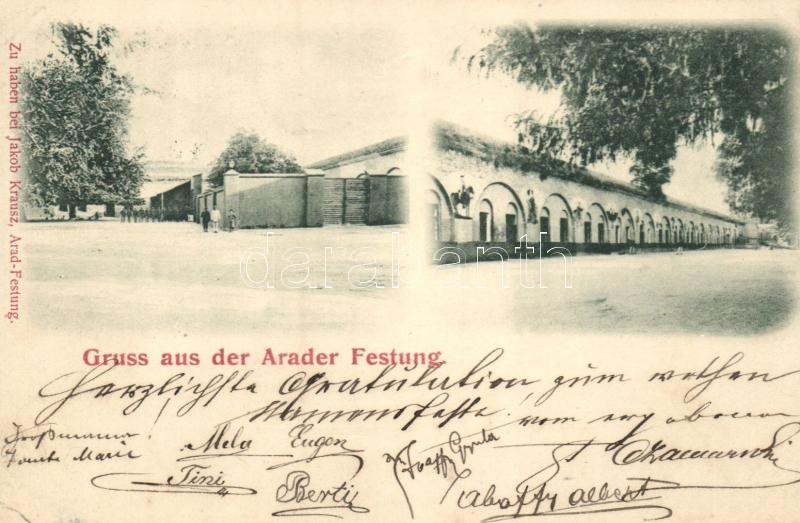 Zu haben bei Jakob Krausz, Arad-Festung.
darabanth
Gruss aus der Arader Festung.
Herzlichste Gratulation zum werthen
Namensfeste! vom
Grossmama
Tante Marie
Mela Eugen
Tini
Berti
Gyula
albert